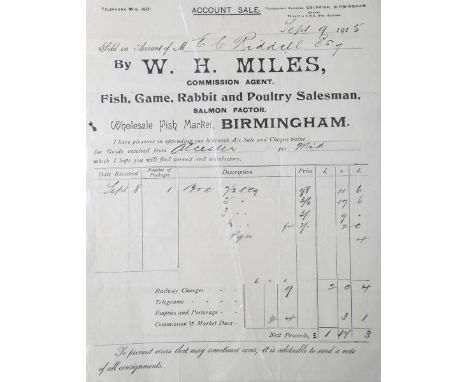 TELEPHONE MID. 1601
ACCOUNT SALE.
TELEGRAPHIC ADDRESS: GOLDFISH, BIRMINGHAM.
Sept 9 1915
Sold on Account of M E C Riddell Esq
By W. H. MILES,
COMMISSION AGENT,
Fish, Game, Rabbit and Poultry Salesman,
SALMON FACTOR.
Wholesale Fish Market, BIRMINGHAM.
I have pleasure in appending you herewith A/c Sale and Cheque value
for Goods received from Alcester per Mid
which I hope you will find correct and satisfactory.
Date Received Number of Packages Description Price £ s. d.
Sept 8 1 Box
Railway Charges 9 2 0 4
Telegrams
Empties and Porterage 3 1
Commission & Market Dues 4
Nett Proceeds, £ 1 17 3
To prevent errors that may sometimes occur, it is advisable to send a note
of all consignments.